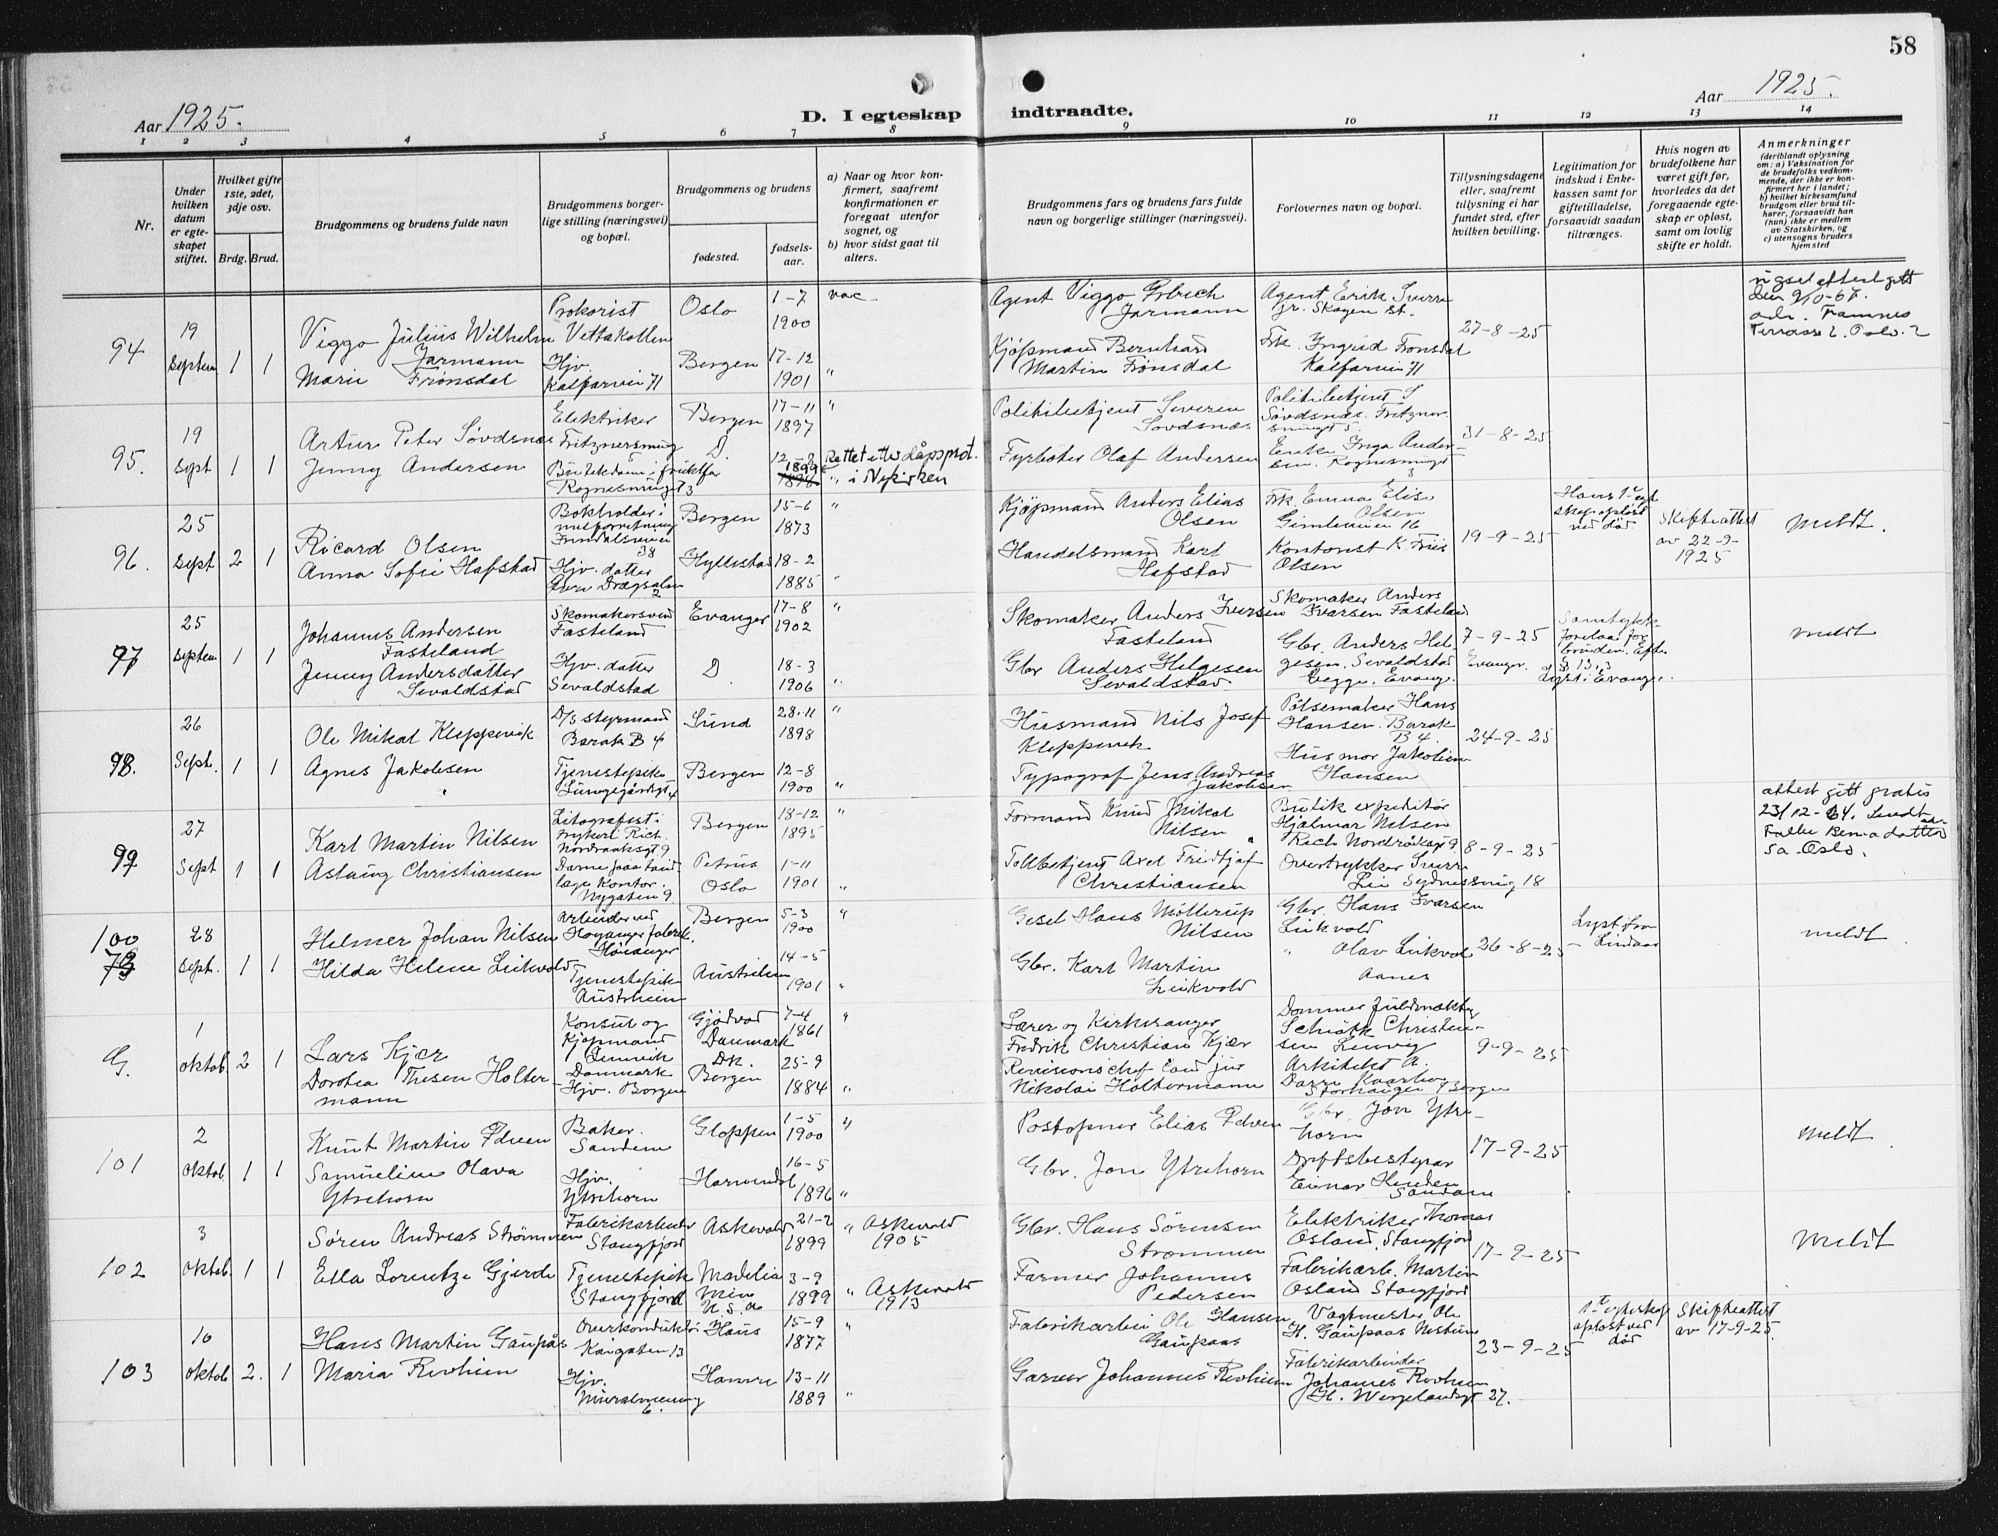 58
Aar 1925.
D. I egteskap indtraadte.
Aar 1925.
1 2 3 4 5 6 7 8 9 10 11 12 13 14
Nr.
Under hvilken datum er egteskapet stiftet.
Hvilket gifte 1ste, 2det, 3dje osv.
Brdg. Brud.
Brudgommens og brudens fulde navn
Brudgommens borgerlige stilling (næringsvei) og bopæl.
Brudgommens og brudens
fødested.
fødselsaar.
a) Naar og hvor konfirmert, saafremt konfirmationen er foregaat utenfor sognet, og
b) hvor sidst gaat til alters.
Brudgommens fars og brudens fars fulde navn og borgerlige stillinger (næringsvei).
Forlovernes navn og bopæl.
Tillysningsdagene eller, saafremt tillysning ei har fundet sted, efter hvilken bevilling.
Legitimation for indskud i Enkekassen samt for giftetilladelse, forsaavidt saadan tiltrænges.
Hvis nogen av brudefolkene har været gift før, hvorledes da det foregaaende egteskap er opløst, samt om lovlig skifte er holdt.
Anmerkninger
(deriblandt oplysning om: a) Vaksination for de brudefolks vedkommende, der ikke er konfirmert her i landet; b) hvilket kirkesamfund brudgom eller brud tilhører, forsaavidt han (hun) ikke er medlem av Statskirken, og c) utensogns bruders hjemsted
94
19 Septem
1 1
Viggo Julius Wilhelm Jarmann
Marie Frønsdal
Prokorist Vettakollen
Hjv. Kalfarvein 71
Oslo
Bergen
1-7 1900
17-12 1901
vac
"
Agent Viggo Jarmann
Kjøpmand Bernhard Martin Frønsdal
Agent Erik Sverre
Frk. Ingrid Frønsdal Kalfarvein 71
27-8-25
Oslo. 2
95.
19 Sept
1 1
Artur Peter Søvdsnæs
Jenny Andersen
Elektriker Fritznersmug 5
Rognesmuget 3
Bergen
D.
17-11 1897
12-2 1899
"
Rettet efter dåpsprot. i Nykirken
Politibetjent Severin Søvdsnæs
Fyrbøter Olaf Andersen
Politibetjent S Søvdsnæs. Fritznersmugt 5.
Enke Inga Andersen. Rognesmuget 3
31-8-25
96.
25 Sept
2 1
Ricard Olsen
Anna Sofie Hafstad
Bokholder i
38
Hjv. datter
Bergen
Hyllestad
15-6 1873
18-2 1885
"
"
Kjøpmand Anders Elias Olsen
Handelsmand Karl Hafstad
Frk. Emma Elise Olsen
Gimleveien 16
Kontorist K. Friis Olsen
19-9-25
Hans 1ste egteskap opløst ved død
Skifteattest av 22-9-1925
meldt.
97
25 Septem
1 1
Johannes Andersen Fasteland
Jenny Andersdatter Sevaldstad
Skomakersvend Fasteland
Hjv. datter Sevaldstad
Evanger
D
17-8 1902
18-3 1906
"
"
Skomaker Anders Iversen Fasteland
Gbr Anders Helgesen Sevaldstad
Skomaker Anders Ivarsen Fasteland
Gbr. Anders Helgesen, Sevaldstad begge, Evang.
7-9-25 Evanger.
§ 13,3 Lyst i Evanger.
meldt
98.
26 Sept.
1 1
Ole Mikal Kleppevik
Agnes Jakobsen
D/s styrmand Barak B 4
Tjenestepike Lungegårdsgt 4
Sund
Bergen
28-11 1898
12-8 1900
"
"
Husmand Nils Josef Kleppevik
Typograf Jens Andreas Jakobsen
Pølsemaker Hans Hansen. Barak B 4.
Husmor Jakobine Hansen
24-9-25
99
27 Sept
1 1
Karl Martin Nilsen
Aslaug Christiansen
Rich. Nordraaksgt 9
Nygaten 9
Bergen
Petrus Oslo
18-12 1895
1-11 1901
"
"
Formand Knud Mikal Nilsen
Tollbetjent Axel Fridtjof Christiansen
Butik expeditør Hjalmar Nilsen
Rich Nordråksgt 9
Overtrykker Sverre Lie Sydnessmug 18
8-9-25
attest gitt gratis 23/12-64.
Oslo.
100 73
28 Sept.
1 1
Helmer Johan Nilsen
Hilda Helene Leikvold
Arbeider ved Høyanger fabrik. Høianger
Tjenestepike Austrheim
Bergen
Austrheim
5-3 1900
14-5 1901
"
"
Gesel Hans Møllerup Nilsen
Gbr. Karl Martin Leikvold
Gbr. Hans Ivarsen Leikvold
" Olav Leikvol Aanes
26-8-25
Lyst fra Lindaas
meldt
G.
1 oktob.
2 1
Lars Kjær
Dorothea Thesen Holtermann
Konsul og Kjøpmand Lemvik Danmark
Hjv. Bergen
Gjødvad Danmark
DK.
Bergen
7-4 1861
25-9 1884
"
"
Lærer og Kirkesanger Fredrik Christian Kjær
Revisionschef Cand jur Nikolai Holtermann
Dommerfuldmæktig Christensen Lemvig
Arkitekt
Storhaugen Bergen
9-9-25
101
2 oktob
1 1
Knut Martin Edven
Samueline Olava Ytrehorn
Baker. Sandene
Hjv. Ytrehorn
Gloppen
Hornindal
1-5 1900
16-5 1896
"
"
Postopner Elias Edven
Gbr. Jon Ytrehorn
Gbr. Jon Ytrehorn
Driftsbestyrer Einar Henden Sandane
17-9-25
meldt
102
3 oktob.
1 1
Søren Andreas Strømmen
Ella Lorentze Gjerde
Fabrikarbeider Stangfjord
Tjenestepike Stangfjord
Askevold
Madelia Min U.S.A
21-2 1899
3-9 1899
" Askevold 1905
" Askevold 1913
Gbr. Hans Sørensen Strømmen
Farmer Johannes Pedersen
Elektriker Thomas Osland, Stangfjord
Fabrikarb. Martin Osland Stangfjord
17-9-25
meldt
103
10 oktob
2. 1
Hans Martin Gaupås
Maria Revheim
Overkonduktør Kaigaten 13
Hjv. Muralmening 6.
Haus
Hamre
15-9 1877
13-11 1889
"
"
Fabrikarbei Ole Hansen Gaupaas
Garver Johannes Revheim
Vagtmester Ole H. Gaupaas Nestun
Fabrikarbeider Johannes Revheim H. Wergelandsgt 27.
23-9-25
1ste egteskap opløst ved død
Skifteattest av 17-9-25.